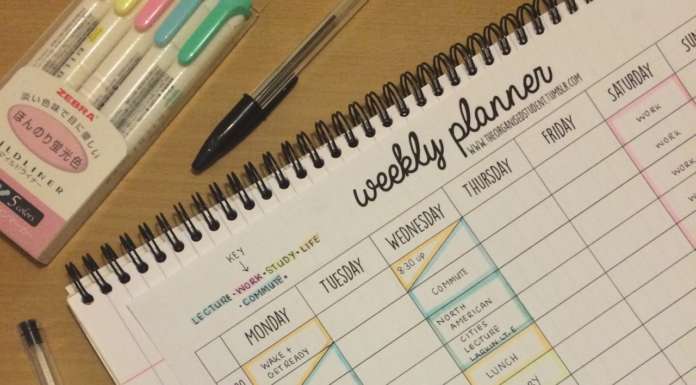 ZEBRA
淡い色味で目に優しい
ほんのり蛍光色
MILDLINER
マイルドライナー
5 colors
weekly planner
WWW.THEORGANISEDSTUDENT.TUMBLR.COM
KEY
LECTURE · WORK · STUDY · LIFE
· COMMUTE ·
MONDAY
TUESDAY
WEDNESDAY
THURSDAY
FRIDAY
SATURDAY
WAKE +
GET READY
8:30 UP
COMMUTE
NORTH
AMERICAN
CITIES
LECTURE
LARKIN LT. E
LUNCH
WORK
WORK
WORK
WORK